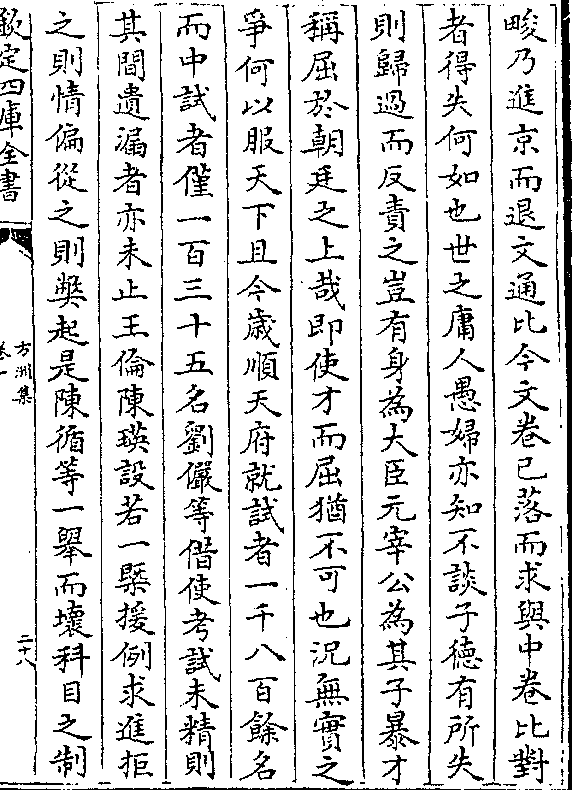 畯乃進京而退文通比今文卷已落而求與中卷比對
者得失何如也世之庸人愚婦亦知不談子徳有所失
則歸過而反責之豈有身為大臣元宰公為其子暴才
稱屈於朝廷之上哉即使才而屈猶不可也況無實之
爭何以服天下且今歳順天府就試者一千八百餘名
而中試者僅一百三十五名劉儼等借使考試未精則
其間遺漏者亦未止王倫陳瑛設若一槩援例求進拒
之則情偏從之則弊起是陳循等一舉而壞科目之制
欽定四庫全書
方洲集
卷一
二十八